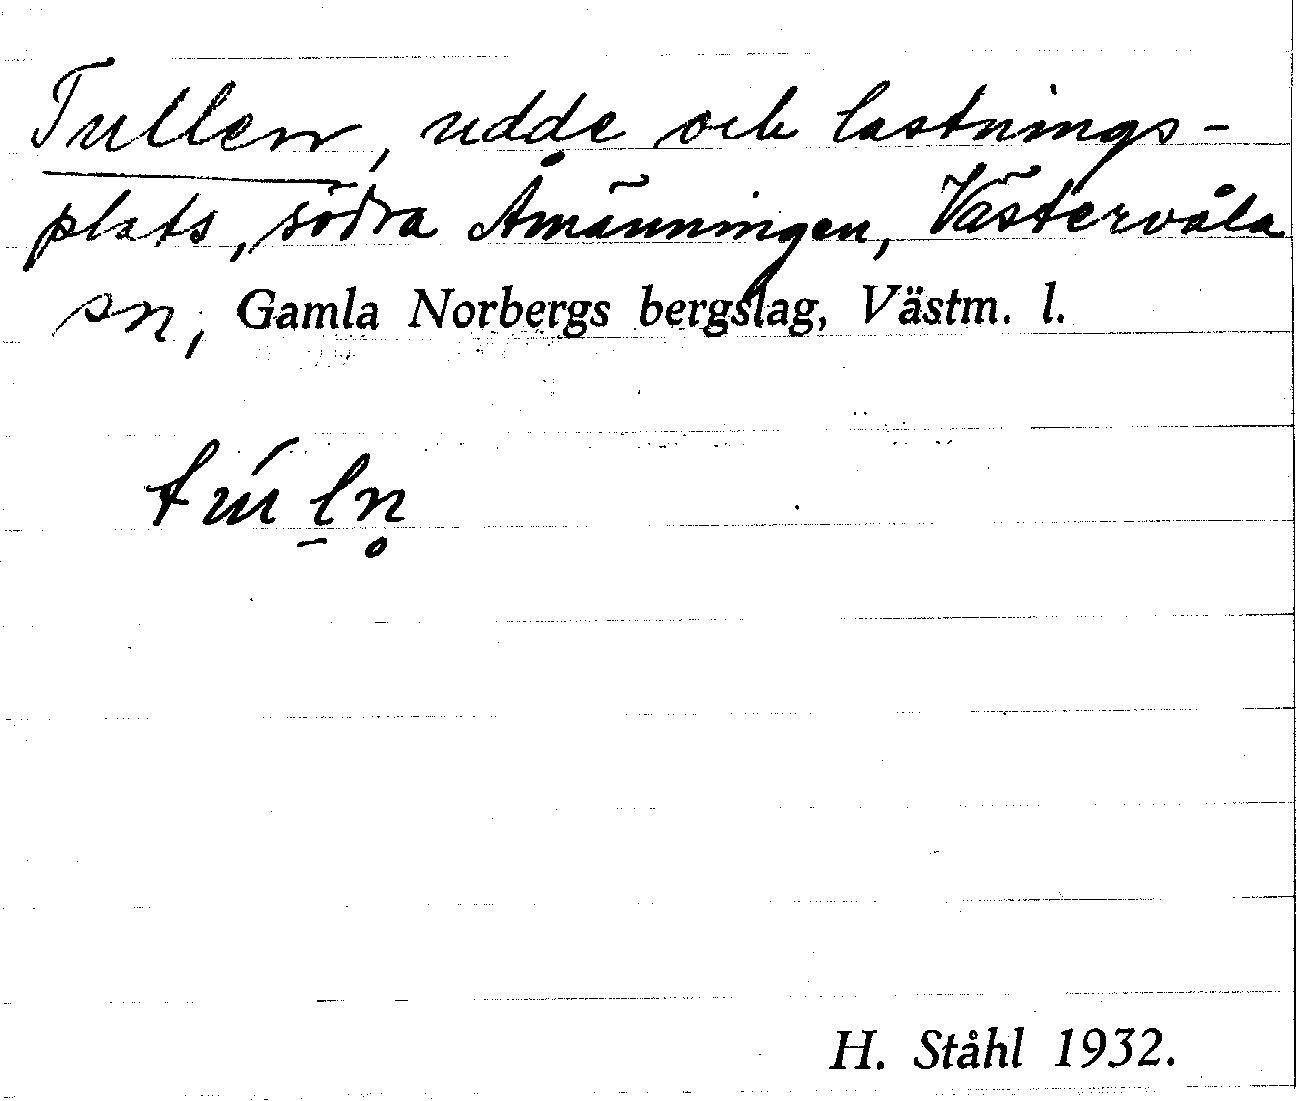 Tullen, udde och lastnings-
plats, södra Åmänningen, Västervåla
sn, Gamla Norbergs bergslag, Västm. l.
túl̠n̥
H. Ståhl 1932.